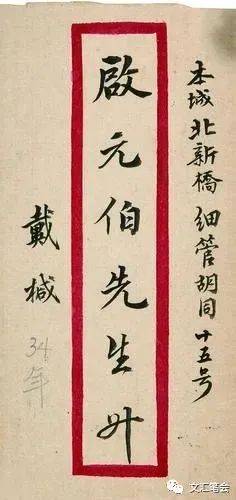 本城北新橋細管胡同十五号
啟元伯先生升
戴椷
34年
文汇笔会